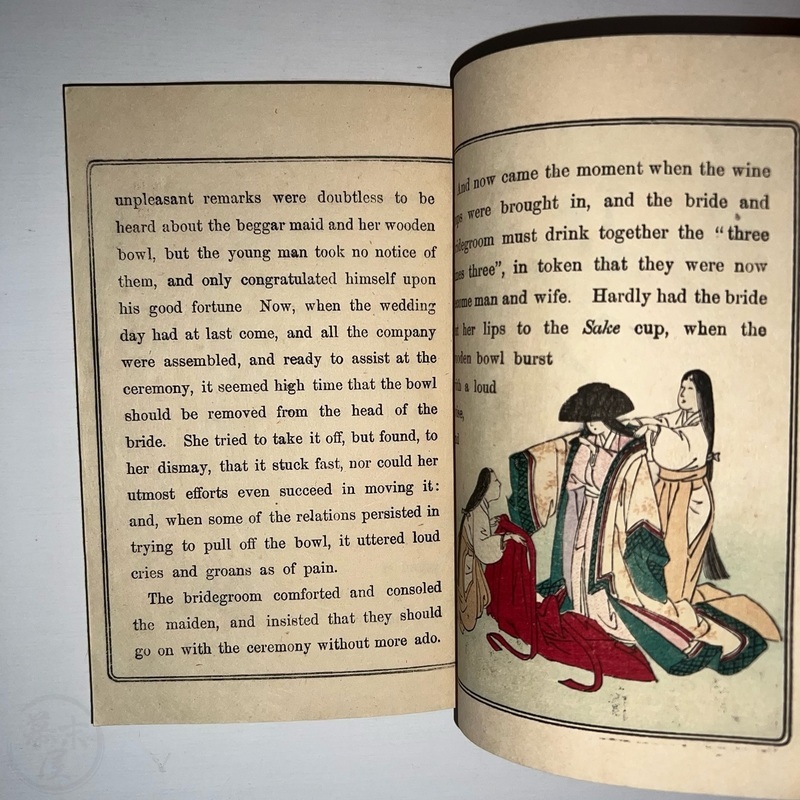 unpleasant remarks were doubtless to be
heard about the beggar maid and her wooden
bowl, but the young man took no notice of
them, and only congratulated himself upon
his good fortune Now, when the wedding
day had at last come, and all the company
were assembled, and ready to assist at the
ceremony, it seemed high time that the bowl
should be removed from the head of the
bride. She tried to take it off, but found, to
her dismay, that it stuck fast, nor could her
utmost efforts even succeed in moving it:
and, when some of the relations persisted in
trying to pull off the bowl, it uttered loud
cries and groans as of pain.
The bridegroom comforted and consoled
the maiden, and insisted that they should
go on with the ceremony without more ado.
And now came the moment when the wine
were brought in, and the bride and
must drink together the “three
three”, in token that they were now
man and wife. Hardly had the bride
her lips to the Sake cup, when the
bowl burst
a loud